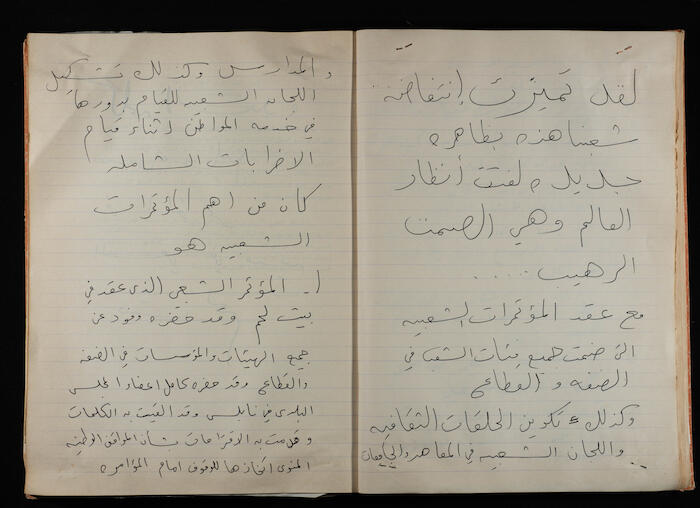 لقد تميزت إنتفاضة
شعبنا هذه بظاهره
جديده لفتت أنظار
العالم وهي الصمت
الرهيب .....
مع عقد المؤتمرات الشعبيه
التي ضمت جميع فئات الشعب في
الضفه والقطاع
وكذلك تكوين الحلقات الثقافيه
واللجان الشعبيه في المعاهد والجامعات
والمدارس وكذلك تشكيل
اللجان الشعبيه للقيام بدورها
في خدمه المواطن اثناء قيام
الاضرابات الشامله
كان من اهم المؤتمرات
الشعبيه هو
١- المؤتمر الشعبي الذي عقد في
بيت لحم وقد حضره وفود عن
جميع الهيئات والمؤسسات في الضفه
والقطاع وقد حضره كامل اعضاء المجلس
البلدي في نابلس وقد القيت به الكلمات
وقدمت به الاقتراحات بشأن المواقف الوطنيه
المنوى اتخاذها للوقوف امام المؤامره